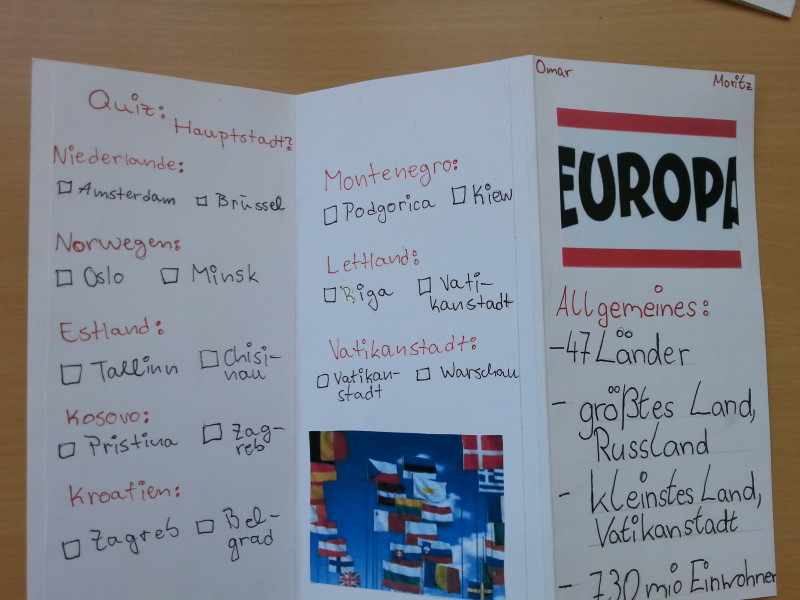 Quiz:
Hauptstadt?
Niederlande:
Amsterdam Brüssel
Norwegen:
Oslo Minsk
Estland:
Tallinn Chisi-
nau
Kosovo:
Pristina Zag-
reb
Kroatien:
Zagreb Bel-
grad
Montenegro:
Podgorica Kiew
Lettland:
Riga Vati-
kanstadt
Vatikanstadt:
Vatikan- Warschau
stadt
Omar Moritz
EUROPA
Allgemeines:
-47 Länder
- größtes Land,
Russland
- kleinstes Land,
Vatikanstadt
- 730 mio Einwohner